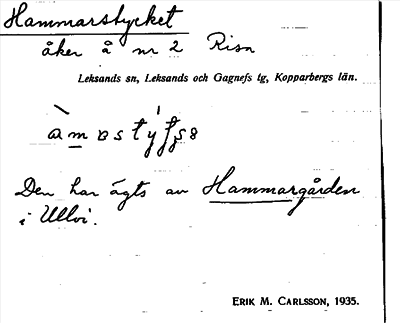 Hammarstycket
åker å nr 2 Risa
Leksands sn, Leksands och Gagnefs tg, Kopparbergs län.
Den har ägts av Hammargården
i Ullvi.
ERIK M. CARLSSON, 1935.